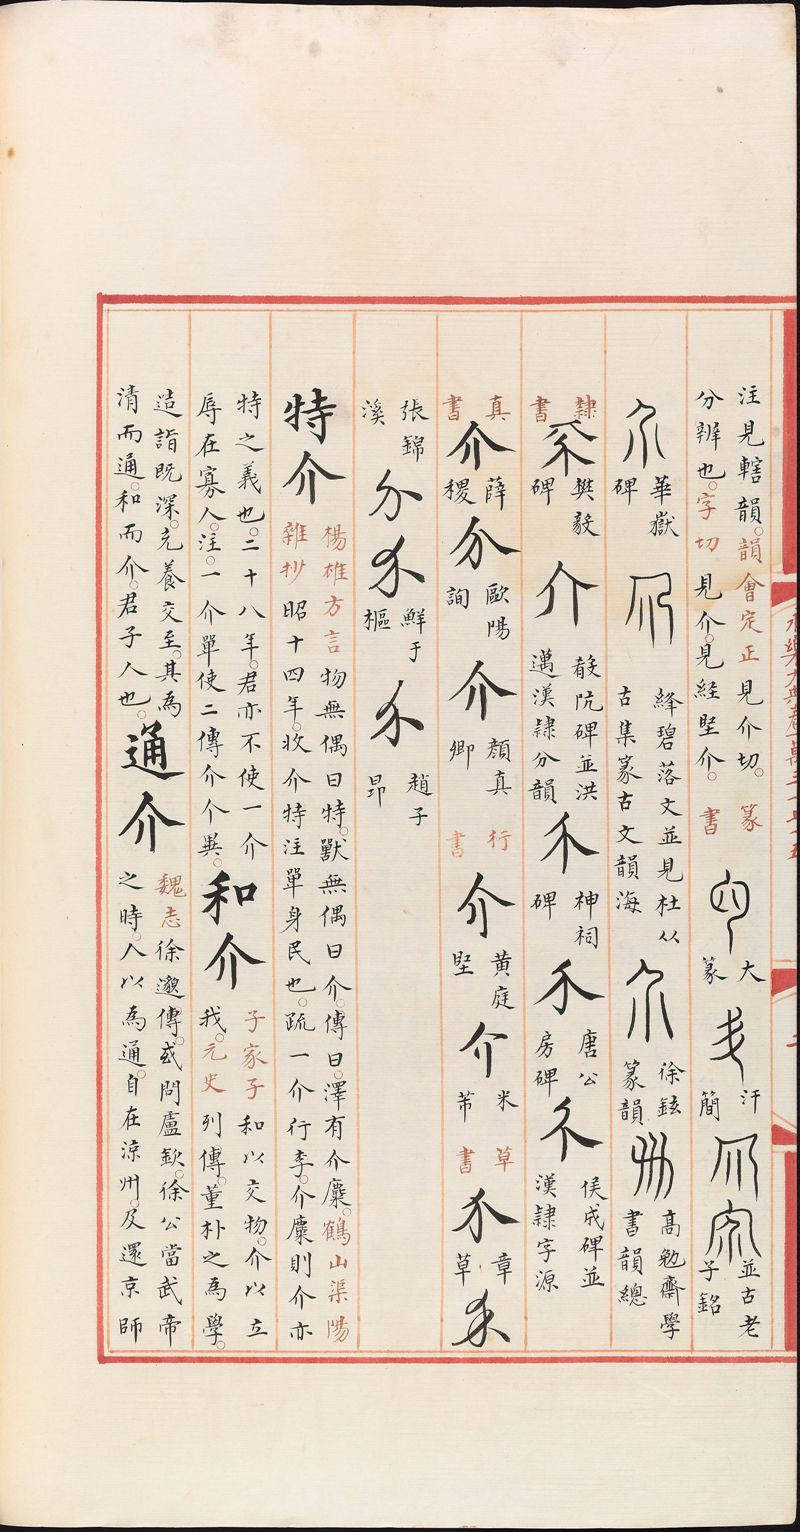 注見轄韻。韻會定正見介切。
分辨也。字切見介。見經堅介。
篆書 大篆 汗簡 並古老子銘
華嶽碑 絳碧落文並見杜从古集篆古文韻海 徐鉉篆韻 高勉齋學書韻總
隸書 介 樊毅碑 介 殽阬碑並洪邁漢隸分韻 介 神祠碑 介 唐公房碑 介 侯成碑並漢隸字源
真書 介 薛稷 介 歐陽詢 介 顏真卿 行書 介 黃庭堅 介 米芾 草書 介 章草 介
張錦溪 介 介 鮮于樞 介 趙子昂
特介
楊雄方言物無偶曰特。獸無偶曰介。傳曰。澤有介麋。鶴山渠陽
雜抄昭十四年。收介特注單身民也。疏一介行李。介麋則介亦
特之義也。二十八年。君亦不使一介
辱在寡人。注。一介單使二傳介个異。
和介
子家子和以交物。介以立
我。元史列傳。董朴之為學。
造詣既深。充養交至。其為
清而通。和而介。君子人也。
通介
魏志徐邈傳。或問盧欽。徐公當武帝
之時。人以為通。自在涼州。及還京師